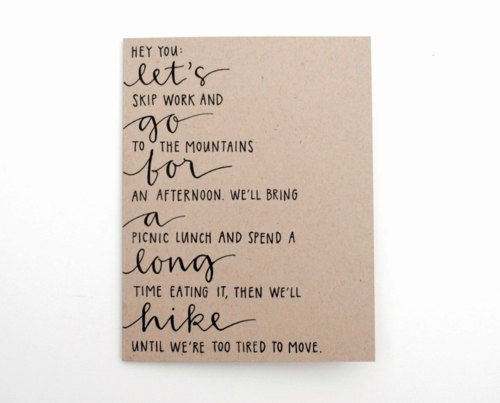 HEY YOU:
let's
SKIP WORK AND
go
TO THE MOUNTAINS
for
AN AFTERNOON. WE'LL BRING
a
PICNIC LUNCH AND SPEND A
long
TIME EATING IT, THEN WE'LL
hike
UNTIL WE'RE TOO TIRED TO MOVE.